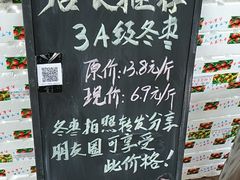 店长推荐
3A级冬枣
原价:13.8元/斤
现价:6.9元/斤
冬枣拍照转发分享
朋友圈可享受
此价格!